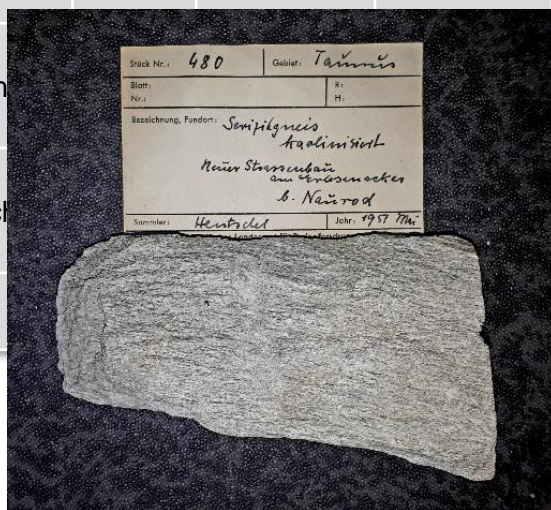 Stück Nr.: 480 Gebiet: Taunus
Blatt: R:
Nr.: H:
Bezeichnung, Fundort: Serizitgneis
kaolinisiert
Neuer Strassenbau
am Erbsenacker
b. Naurod
Sammler: Hentschel Jahr: 1951 Mai